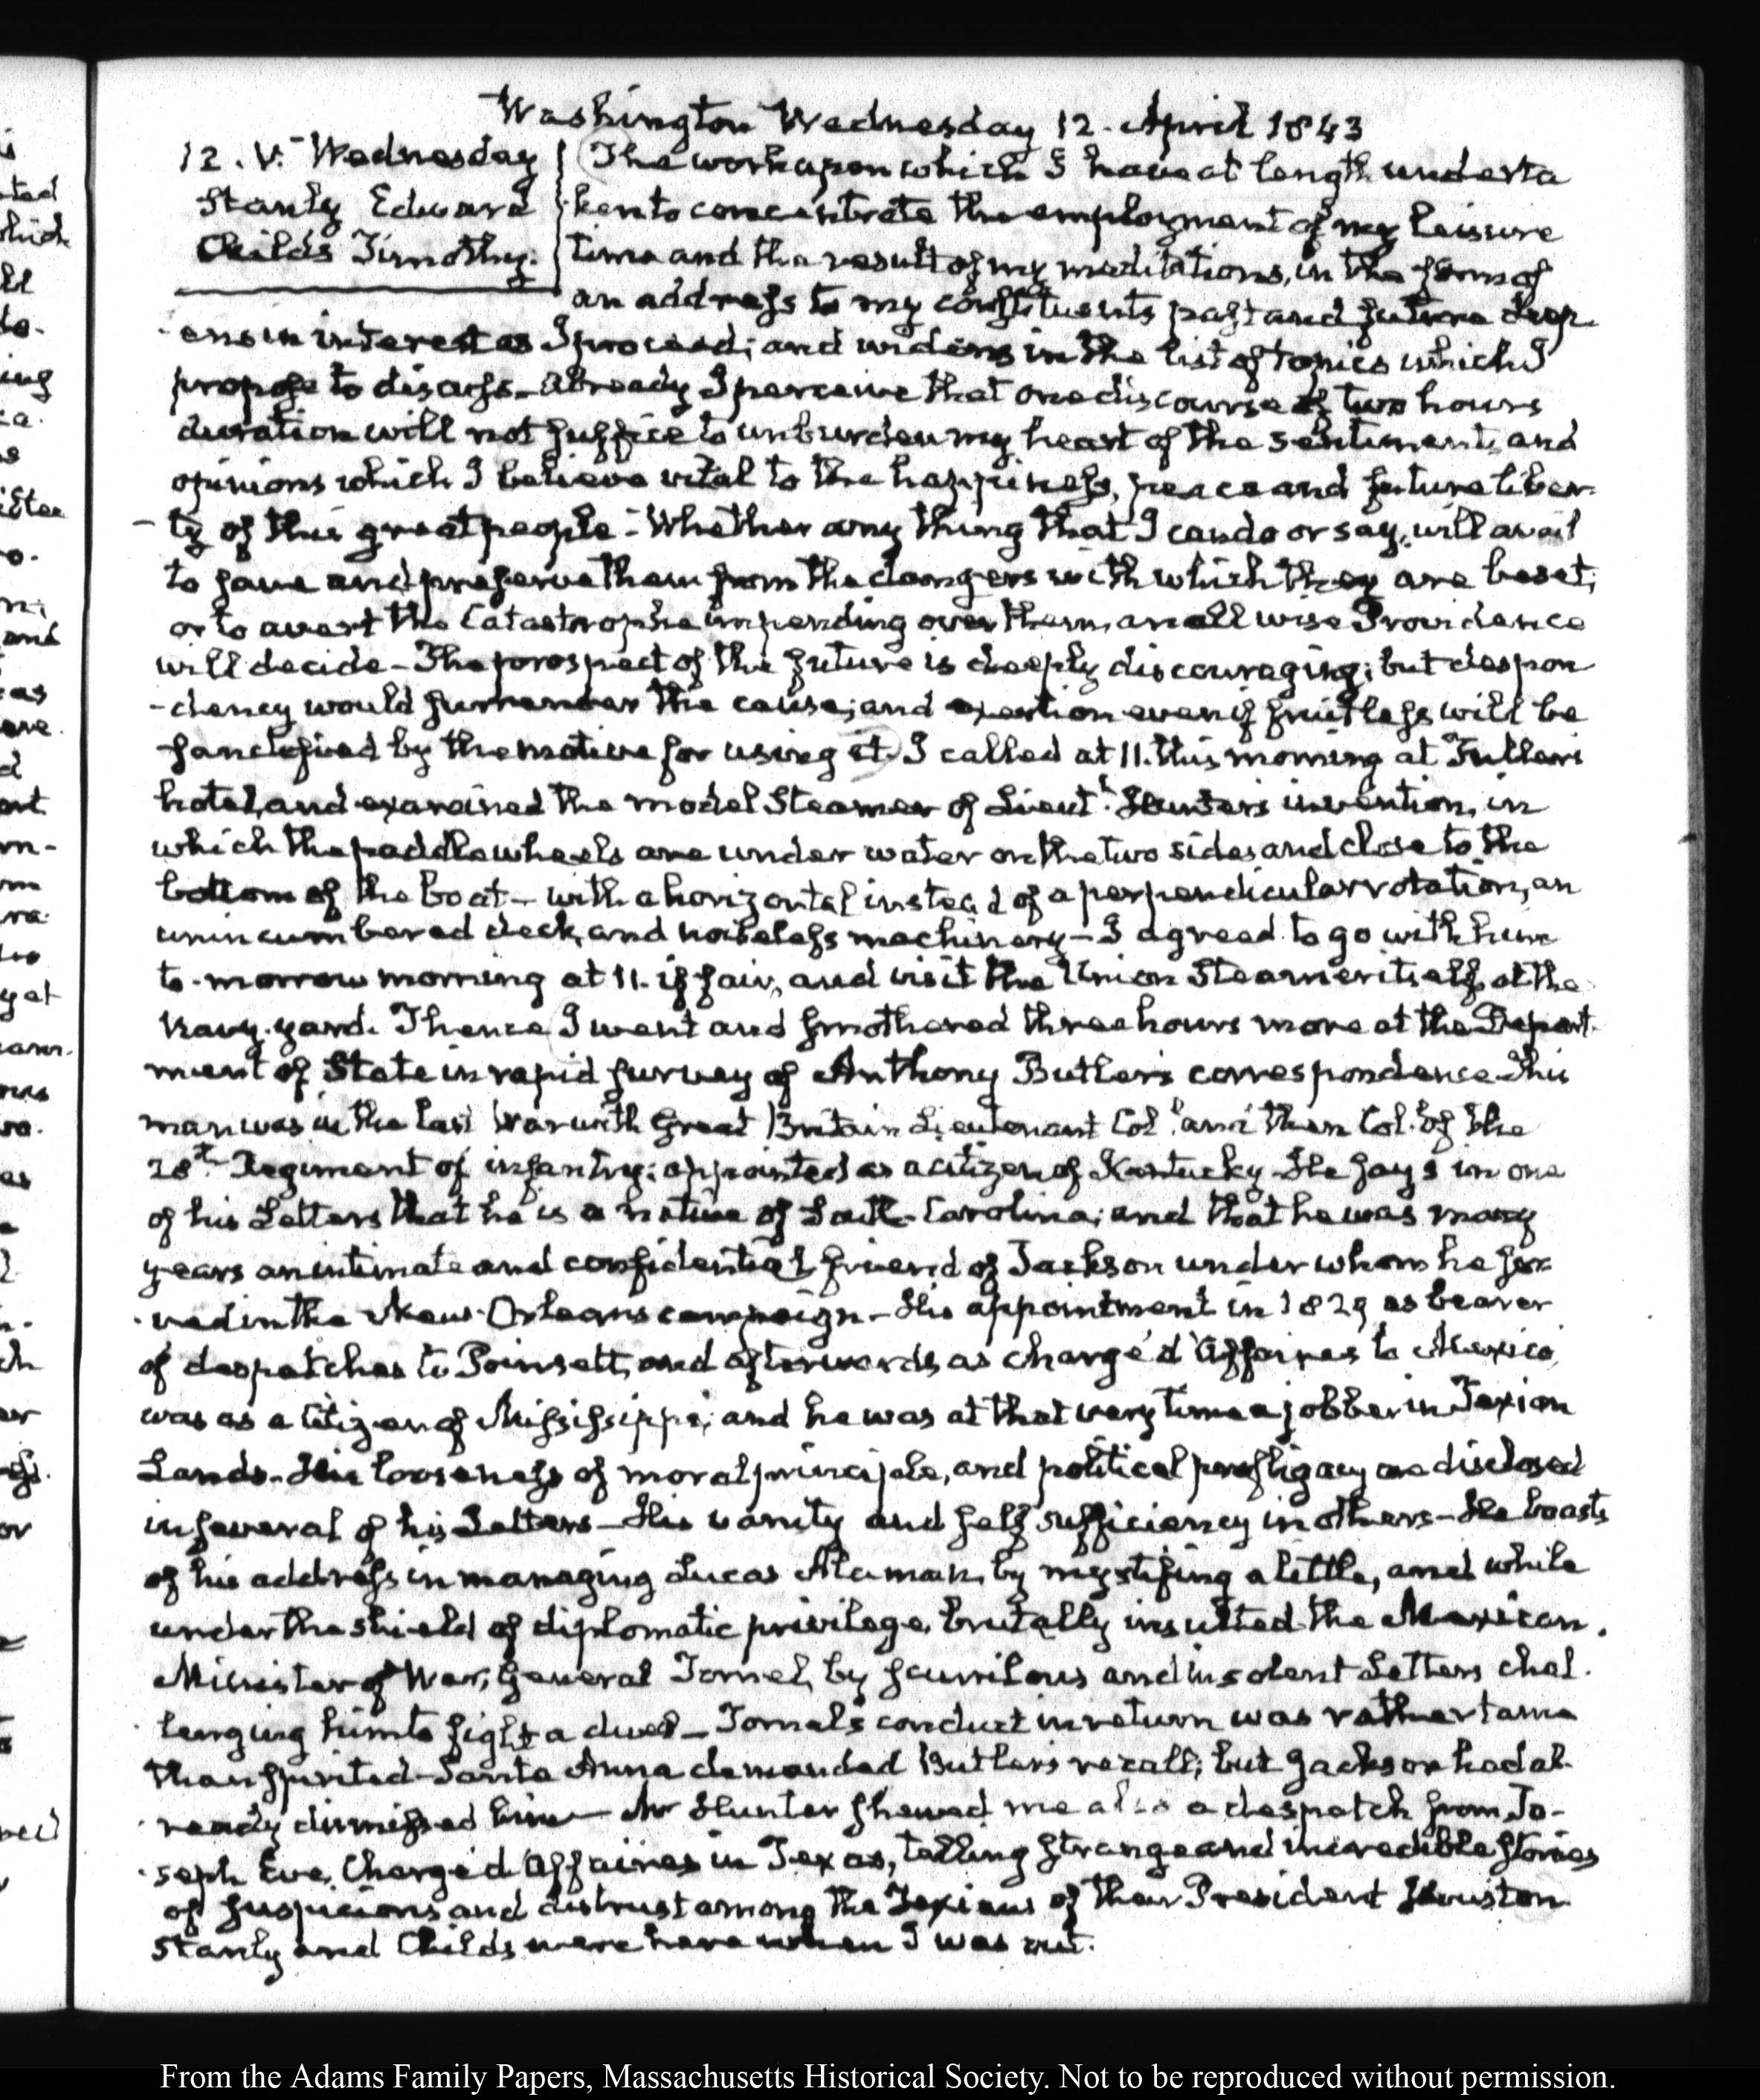 Washington Wednesday 12. April 1843
12. V. Wednesday
Stanly Edward
Childs Timothy.
The work upon which I have at length underta
ken to concentrate the employment of my leisure
time and the result of my meditations, in the form of
an address to my constituents past and future deep-
ens in interest as I proceed; and widens in the list of topics which I
propose to discuss. Already I perceive that one discourse of two hours
duration will not suffice to unburden my heart of the sentiments and
opinions which I believe vital to the happiness, peace and future liber-
-ty of this great people. Whether any thing that I can do or say, will avail
to save and preserve them from the dangers with which they are beset;
or to avert the Catastrophe impending over them, an all wise Providence
will decide - The prospect of the future is deeply discouraging; but despon
-dency would surrender the cause; and exertion even if fruitless will be
sanctified by the motive for using it. I called at 11. this morning at Fuller's
hotel, and examined the model Steamer of Lieutt. Hunter's invention, in
which the paddle wheels are under water on the two sides and close to the
bottom of the boat - with a horizontal instead of a perpendicular rotation, an
unincumbered deck, and noiseless machinery - I agreed to go with him
to-morrow morning at 11. if fair, and visit the Union Steamer itself at the
Navy-yard. Thence I went and smothered three hours more at the Depart-
ment of State in rapid survey of Anthony Butler's correspondence. This
man was in the last War with Great Britain Lieutenant Coll. and then Col. of the
28th. Regiment of infantry: appointed as a citizen of Kentucky. He says in one
of his Letters that he is a native of South-Carolina; and that he was many
years an intimate and confidential friend of Jackson under whom he ser
-ved in the New-Orleans campaign - His appointment in 1829 as bearer
of despatches to Poinsett, and afterwards as chargé d'Affaires to Mexico,
was as a Citizen of Mississippi; and he was at that very time a jobber in Texian
Lands. His looseness of moral principle, and political profligacy are disclosed
in several of his Letters - His vanity and self sufficiency in others - He boasts
of his address in managing Lucas Alaman, by mystifing a little, and while
under the shield of diplomatic privilege, brutally insulted the Mexican
Minister of War, General Tornel, by scurrilous and insolent Letters chal-
lenging him to fight a duel - Tornel's conduct in return was rather tame
than spirited - Santa Anna demanded Butler's recall; but Jackson had al-
-ready dismissed him - Mr Hunter shewed me also a despatch from Jo-
-seph Eve, Chargé d'Affaires in Texas, telling strange and incredible stories
of suspicions and distrust among the Texians of their President Houston.
Stanly and Childs were here when I was out.
From the Adams Family Papers, Massachusetts Historical Society. Not to be reproduced without permission.